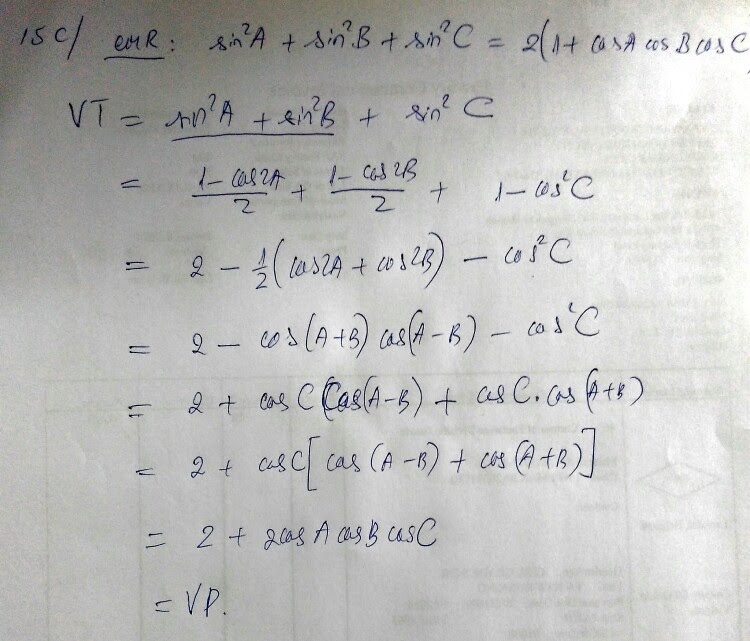 15C/ cmR: sin²A + sin²B + sin²C = 2(1 + cosA cosB cosC
VT = sin²A + sin²B + sin²C
= (1 - cos2A)/2 + (1 - cos2B)/2 + 1 - cos²C
= 2 - 1/2(cos2A + cos2B) - cos²C
= 2 - cos(A+B) cos(A-B) - cos²C
= 2 + cosC Cos(A-B) + cosC.cos(A+B)
= 2 + cosC[cos(A-B) + cos(A+B)]
= 2 + 2cosA cosB cosC
= VP.